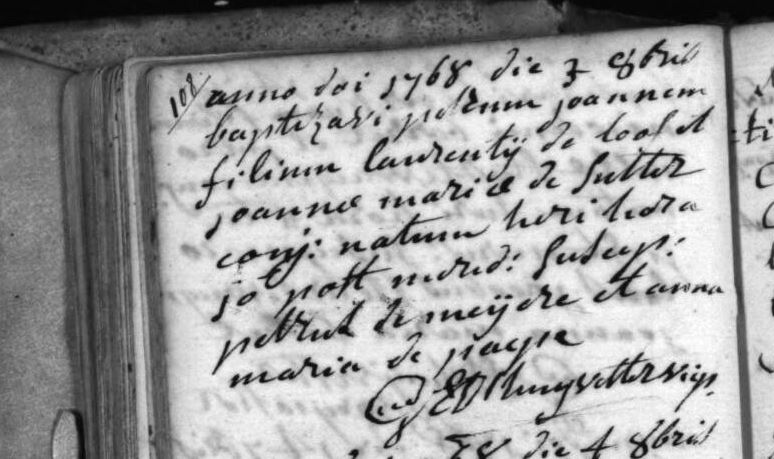 108/ anno doi 1768 die 3 8bris
baptizavi petrum joannem
filium laurentij de cool et
joannæ mariæ de sutter
conj: natum heri hora
10 post merid: suscep:
petrus de meijere et anna
maria de paepe
die 4 8bris